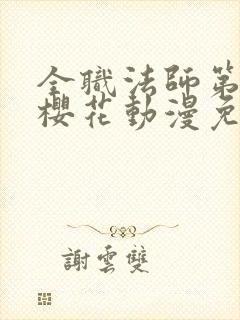 全職法師第
櫻花動漫免
謝雲雙